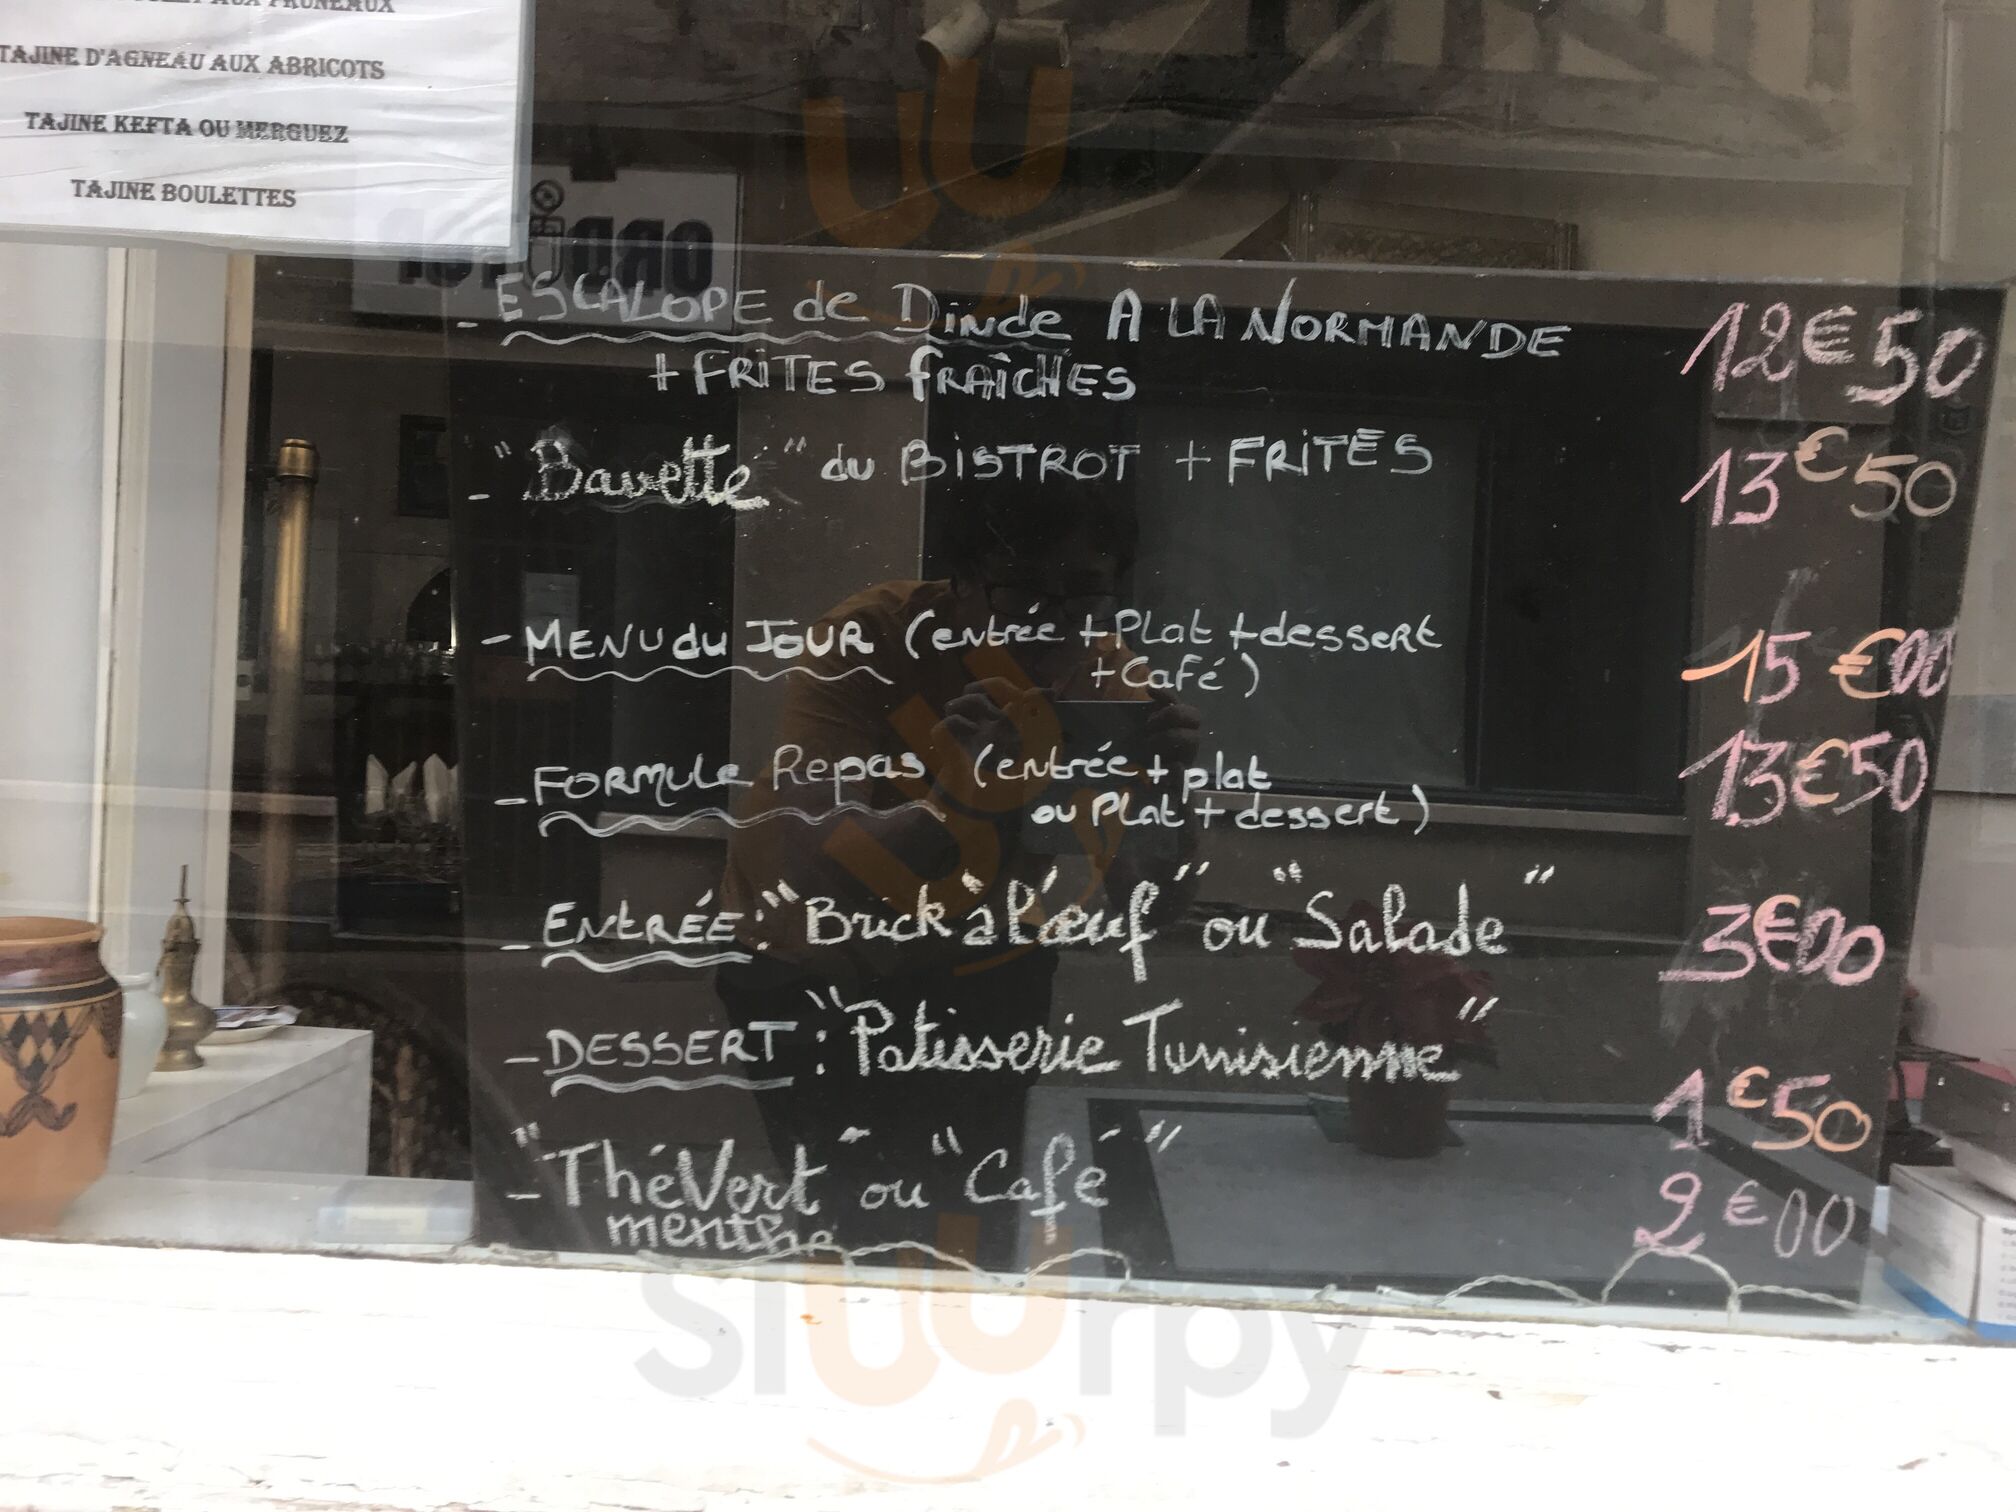 AUX PRUNEAUX
TAJINE D'AGNEAU AUX ABRICOTS
TAJINE KEFTA OU MERGUEZ
TAJINE BOULETTES
- ESCALOPE de Dinde A LA NORMANDE 12€50
+ FRITES fRAÎCHES
- "Bavette" du BISTROT + FRITES 13€50
- MENU du JOUR (entrée + PLat + dessert 15€00
+ Café)
- FORMULE Repas (entrée + plat 13€50
ou PLat + dessert)
- ENTRÉE : "Brick à l'œuf" ou "Salade" 3€00
- DESSERT : "Patisserie Tunisienne"
1€50
- "Thé Vert" ou "Café" 2€00
menthe
sluurpy